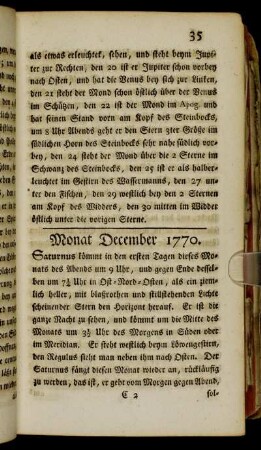 35
als etwas erleuchtet, sehen, und steht beym Jupi-
ter zur Rechten, den 20 ist er Jupiter schon vorbey
nach Osten, und hat die Venus bey sich zur Linken,
den 21 steht der Mond schon östlich über der Venus
im Schützen, den 22 ist der Mond im Apog. und
hat seinen Stand vorn am Kopf des Steinbocks,
um 5 Uhr Abends geht er den Stern 3ter Größe im
südlichen Horn des Steinbocks sehr nahe südlich vor-
bey, den 24 steht der Mond über die 2 Sterne im
Schwanz des Steinbocks, den 25 ist er als halber-
leuchtet im Gestirn des Wassermanns, den 27 un-
ter den Fischen, den 29 westlich bey den 2 Sternen
am Kopf des Widders, den 30 mitten im Widder
östlich unter die vorigen Sterne.
Monat December 1770.
Saturnus kömmt in den ersten Tagen dieses Mo-
nats des Abends um 9 Uhr, und gegen Ende dessel-
ben um 7½ Uhr in Ost-Nord-Osten, als ein ziem-
lich heller, mit blaßrothen und stillstehenden Lichte
scheinender Stern den Horizont herauf. Er ist die
ganze Nacht zu sehen, und kömmt um die Mitte des
Monats um 3½ Uhr des Morgens in Süden oder
im Meridian. Er steht westlich beym Löwengestirn,
den Regulus sieht man neben ihm nach Osten. Der
Saturnus fängt diesen Monat wieder an, rückläufig
zu werden, das ist, er geht vom Morgen gegen Abend,
C 2 fol-